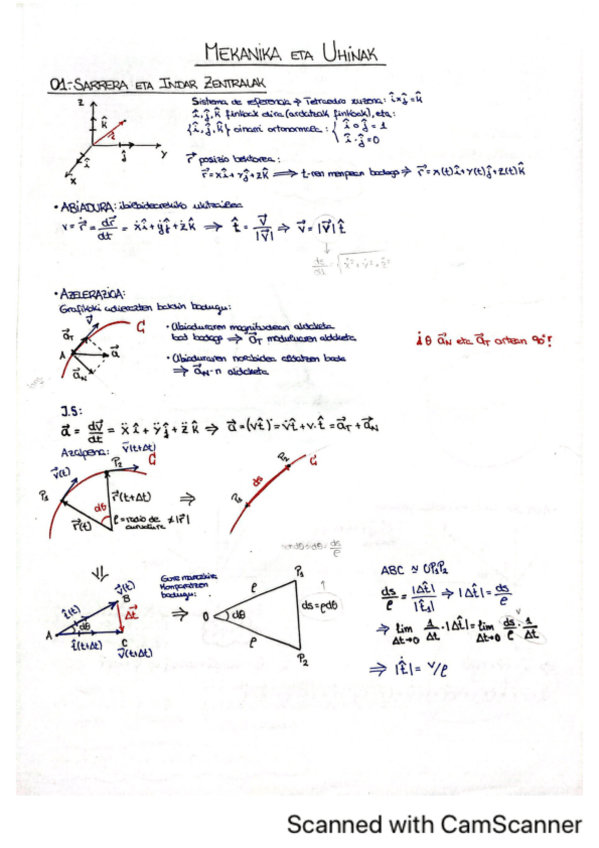 MEKANIKA ETA UHINAK
01.-SARRERA ETA INDAR ZENTRALAK
Sistema de referencia → Tetraedro zuzena: î×ĵ=k̂
î, ĵ, k̂ finkoak dira (ardatzak finkoak), eta:
{î, ĵ, k̂} oinarri ortonormala: { î·î=1
î·ĵ=0
z
k̂
r⃗
ĵ
y
î
x
r⃗ posizio bektorea:
r⃗=xî+yĵ+zk̂ ⟹ t-ren menpean badago ⟹ r⃗=x(t)î+y(t)ĵ+z(t)k̂
• ABIADURA: ibilbidearekiko
v=ṙ=dr⃗/dt=ẋî+ẏĵ+żk̂ ⟹ t̂=v⃗/|v⃗| ⟹ v⃗=|v⃗|t̂
ds/dt=√ẋ²+ẏ²+ż²
• AZELERAZIOA:
Grafikoki adierazten badugu:
v⃗
C
a⃗T
A
a⃗
a⃗N
• Abiaduraren magnitudean aldaketa
bat badago ⟹ a⃗T moduluaren aldaketa
• Abiaduraren norabidea aldatzen bada
⟹ a⃗N-n aldaketa
a⃗N eta a⃗T artean 90°!
J.S:
a⃗=dv⃗/dt=ẍî+ÿĵ+z̈k̂ ⟹ a⃗=(vt̂)˙=v̇t̂+v·t̂˙=a⃗T+a⃗N
Azalpena:
v⃗(t+Δt)
v⃗(t)
P₂
C
P₁
r⃗(t+Δt)
dθ
r⃗(t)
ρ=radio de curvatura ≠|r⃗|
⟹
P₂
C
ds
P₁
dθ=ds/ρ
⇓
v⃗(t)
t̂(t)
B
Δt⃗
A
dθ
t̂(t+Δt)
C
v⃗(t+Δt)
Gure
konparatzen
badugu:
⟹
P₁
ρ
O
dθ
ds=ρdθ
ρ
P₂
ABC ≃ OP₁P₂
ds/ρ=|Δt̂|/|t̂₁| ⟹ |Δt̂|=ds/ρ
⟹ lim Δt→0 1/Δt·|Δt̂|=lim Δt→0 ds/ρ·1/Δt
⟹ |t̂˙|=v/ρ
Scanned with CamScanner